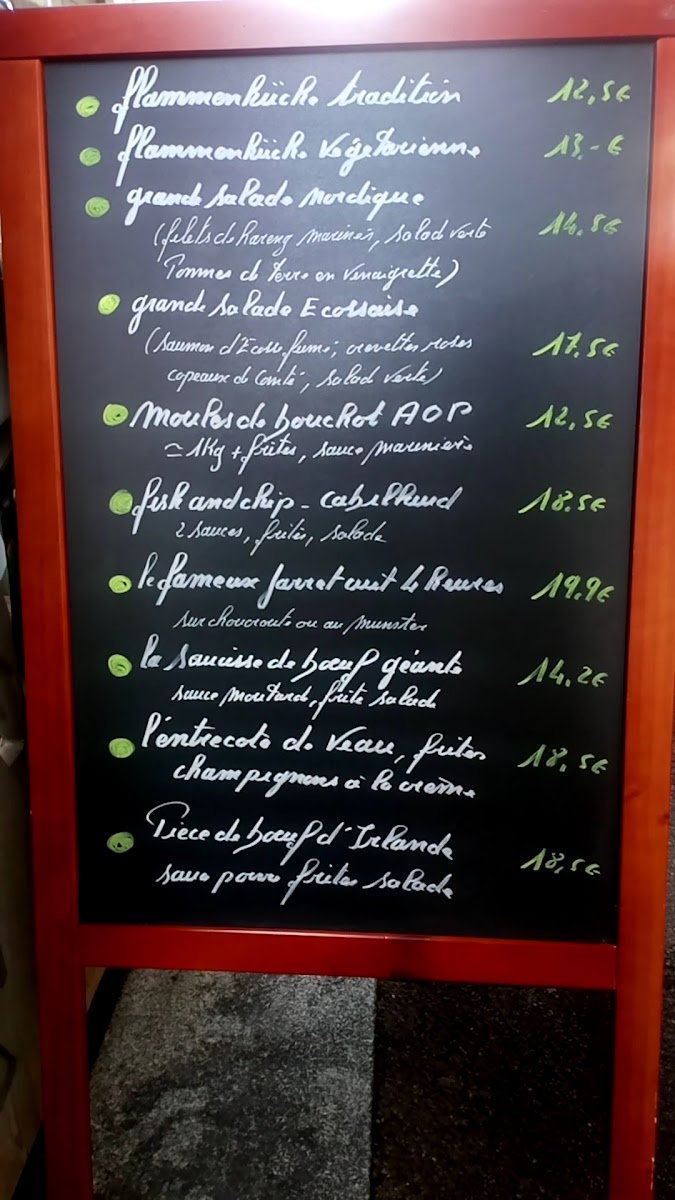 flammenküche tradition 12,5€
flammenküche végétarienne 13,-€
grande salade nordique
(filets de hareng marinés, salade verte 14,5€
Pommes de terre en vinaigrette)
grande salade Ecossaise
(saumon d'Ecosse fumé, crevettes roses 17,5€
copeaux de Comté, salade verte)
Moules de bouchot AOP 12,5€
≃ 1Kg + frites, sauce marinière
fish and chip - cabillaud 18.5€
2 sauces, frites, salade
le fameux jarret cuit heures 19,9€
sur choucroute ou au munster
la saucisse de bœuf géante 14,2€
sauce moutarde, frite salade
l'entrecote de Veau, frites 18,5€
champignons à la crème
Pièce de bœuf d'Irlande
sauce poivre frites salade 18,5€